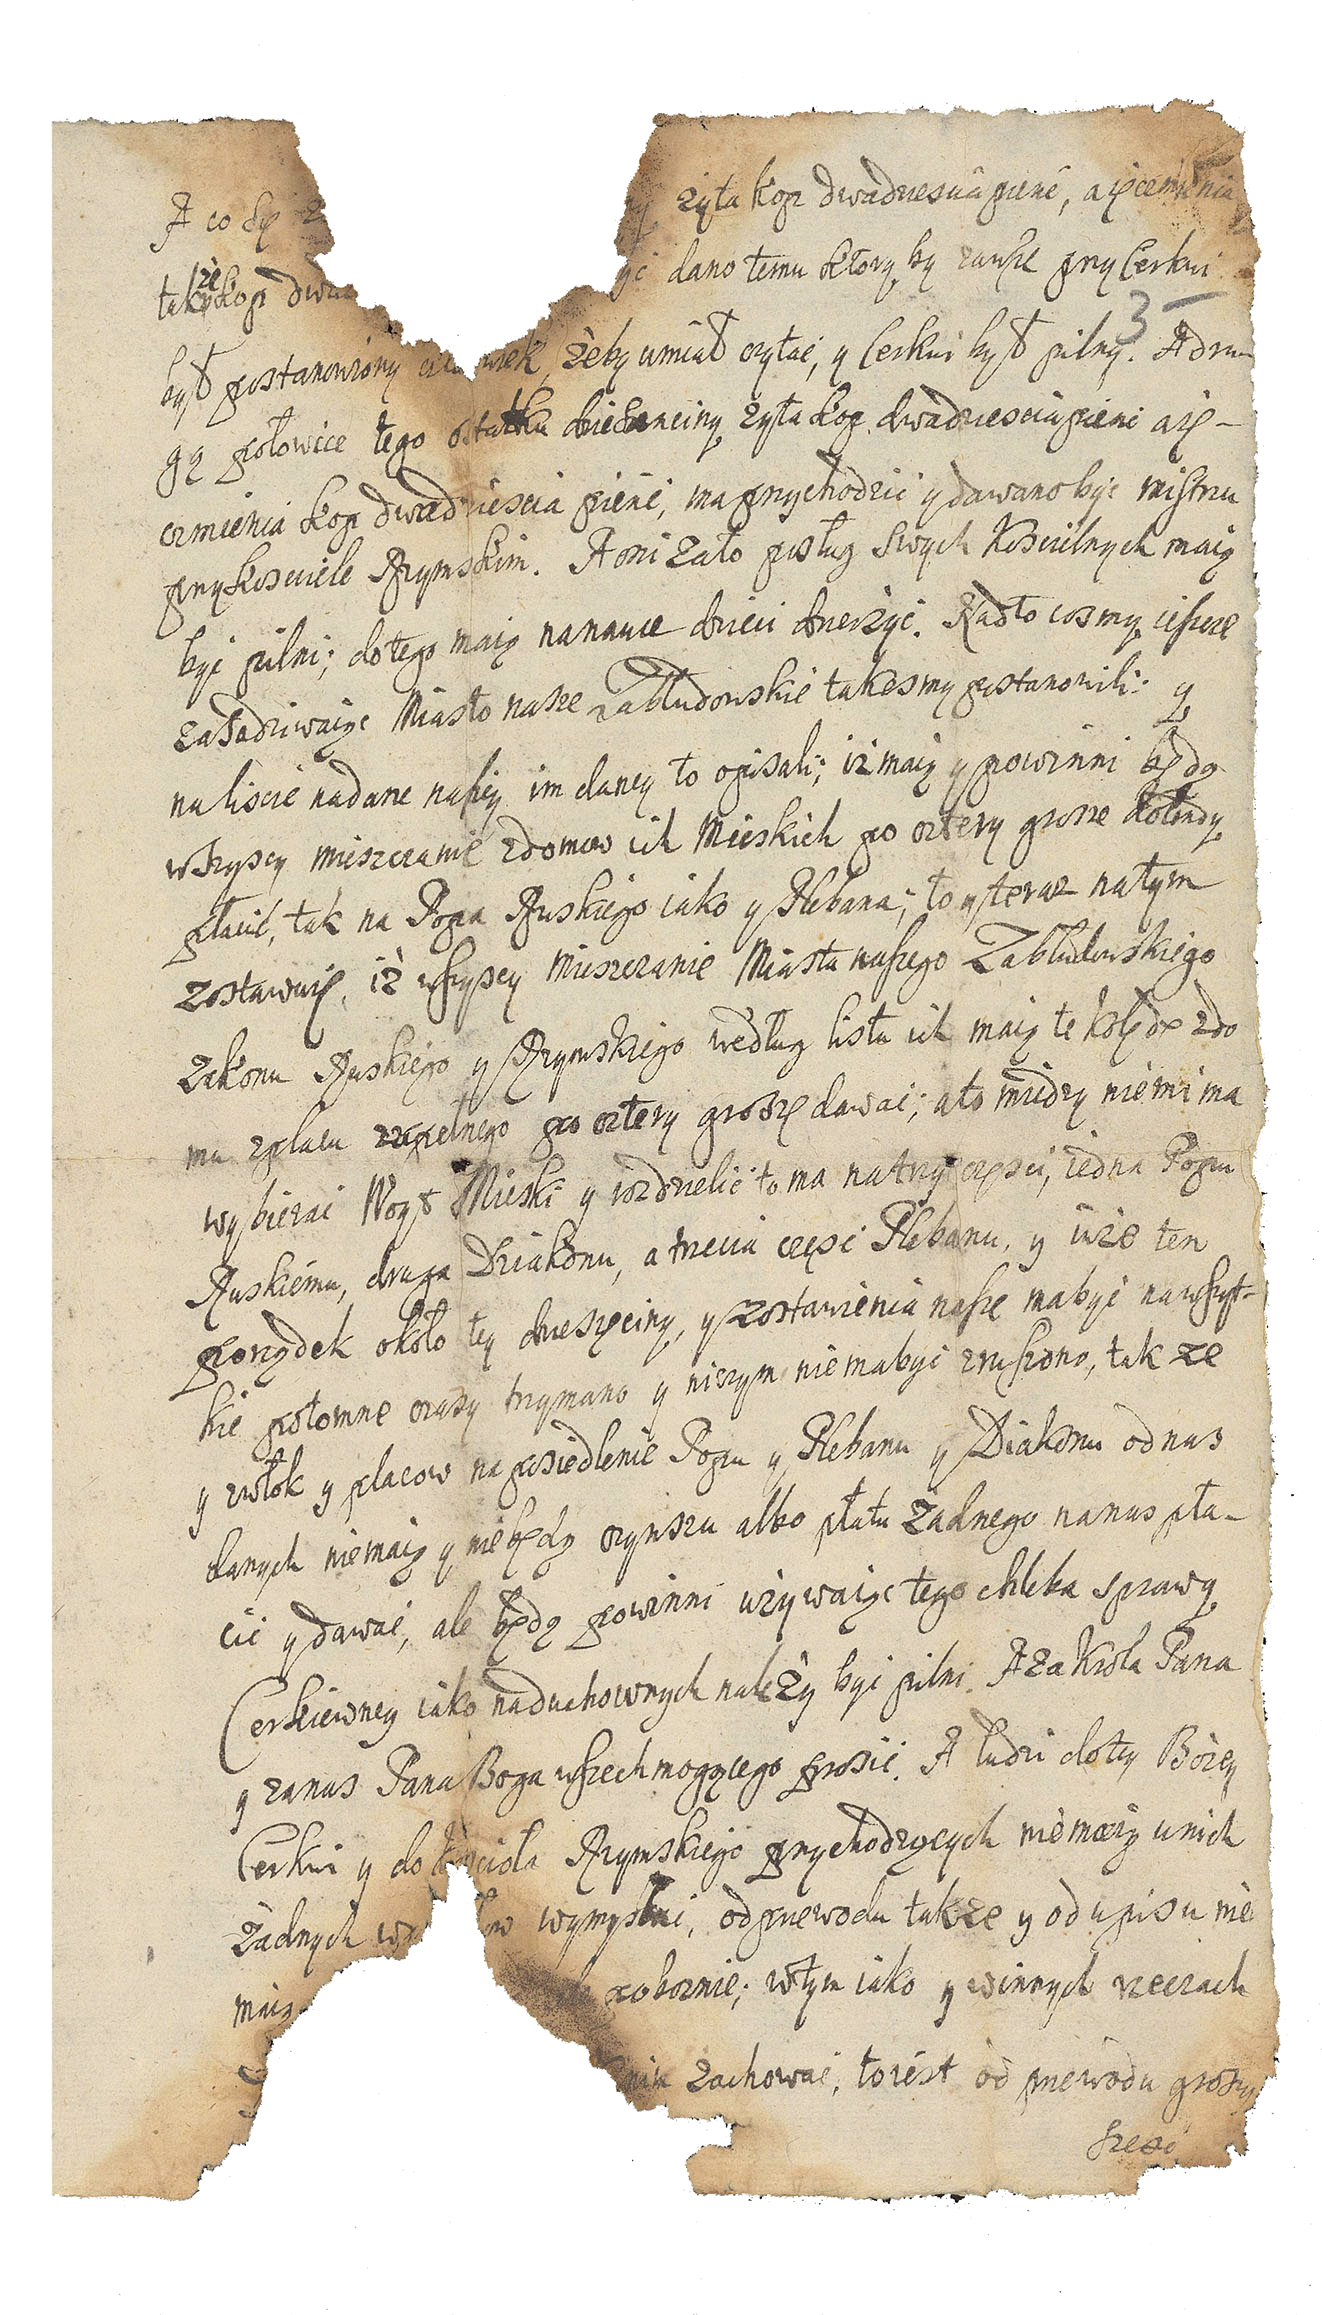 A co się żyta kop dwadziescia pieńć, a ięczmienia
także kop dwa yć dano temu ktory by zawsze przy Cerkwi 3
był postanowiony człowiek, żeby umiał czytać, y Cerkwi był pilny. A dru-
gą połowice tego ostatku dziesienciny żyta kop dwadziescia pienć a ię-
czmienia kop dwadziescia pienć, ma przychodzić y dawano być mistrzu
przy Kosciele Rzymskim. A oni zato posług swych Koscielnych maią
być pilni; do tego maią na nauce dzieci dzerżyć. Nadto cosmy ieszcze
zasadziwaiąc Miasto nasze Zabłudowskie takesmy postanowili: y
na liscie nadane naszey im daney to opisali; iż maią y powinni będą
wszyscy mieszczanie z domow ich Mieskich po cztery grosze kolendy
płacić, tak na Popa Ruskiego iako y Plebana; to y teraz na tym
zostawuię, iż wszyscy Mieszczanie Miasta naszego Zabłudowskiego
Zakonu Ruskiego y Rzymskiego według listu ich maią te kolędę z do
mu z placu zupełnego po cztery groszę dawać; a to miedzy niemi ma
wybierać Woyt Mieski y rozdzielić to ma na trzy częsci, iedna Popu
Ruskiemu, druga Dziakonu, a trzecia częsć Plebanu, y iuże ten
porządek około tey dziesięciny, y zostawienia nasze ma być na wszyt-
kie potomne czasy trzymano y niczym nie ma być zruszono, tak ze
y zwłok y placow na posiedlenie Popu y Plebanu y Diakonu od nas
danych nie maią y nie będą czynszu albo płatu żadnego na nas pła-
cić y dawać, ale będą powinni używaiąc tego chleba sprawy
Cerkiewney iako na duchownych należy być pilni. A za Krola Pana
y za nas Pana Boga wszechmogącego prosić. A ludzi do tey Bożey
Cerkwi y do Kościoła Rzymskiego przychodzących nie maią u nich
żadnych ow wymyslac, od przewodu także y od upisu nie
maią pobożnie; w tym iako y w innych rzeczach
zachować, to iest od przewodu groszy
szesć